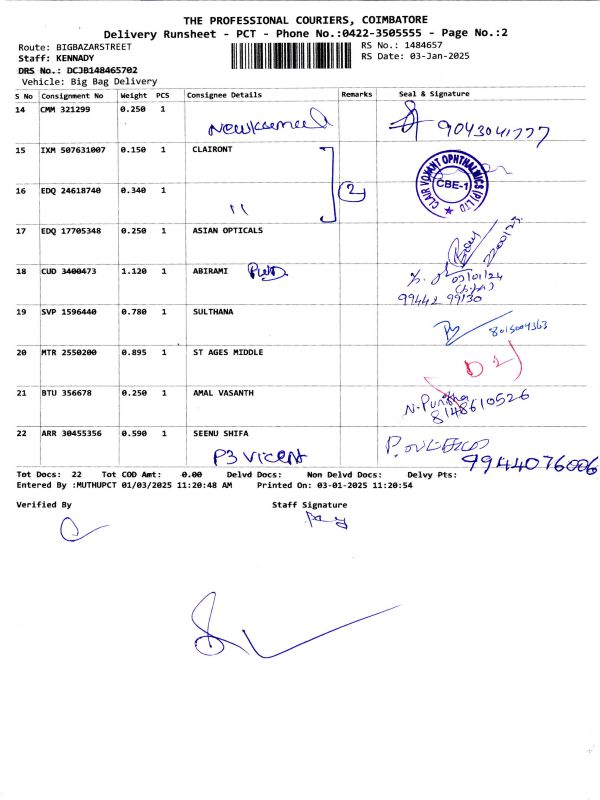 THE PROFESSIONAL COURIERS, COIMBATORE
Delivery Runsheet - PCT - Phone No.:0422-3505555 - Page No.:2
Route: BIGBAZARSTREET
RS No.: 1484657
Staff: KENNADY
RS Date: 03-Jan-2025
DRS No.: DCJB148465702
Vehicle: Big Bag Delivery
S No Consignment No Weight PCS Consignee Details Remarks Seal & Signature
14 CMM 321299 0.250 1
9043041777
15 IXM 507631007 0.150 1 CLAIRONT
CLAIR VOYANT OPHTHALMICS (P) LTD
CBE-1
2
16 EDQ 24618740 0.340 1
"
17 EDQ 17705348 0.250 1 ASIAN OPTICALS
18 CUD 3400473 1.120 1 ABIRAMI
03/01/24
99442 99130
19 SVP 1596440 0.780 1 SULTHANA
8015004363
20 MTR 2550200 0.895 1 ST AGES MIDDLE
21 BTU 356678 0.250 1 AMAL VASANTH
8148610526
22 ARR 30455356 0.590 1 SEENU SHIFA
P3 Vicent
9944076006
Tot Docs: 22 Tot COD Amt: 0.00 Delvd Docs: Non Delvd Docs: Delvy Pts:
Entered By :MUTHUPCT 01/03/2025 11:20:48 AM Printed On: 03-01-2025 11:20:54
Verified By
Staff Signature